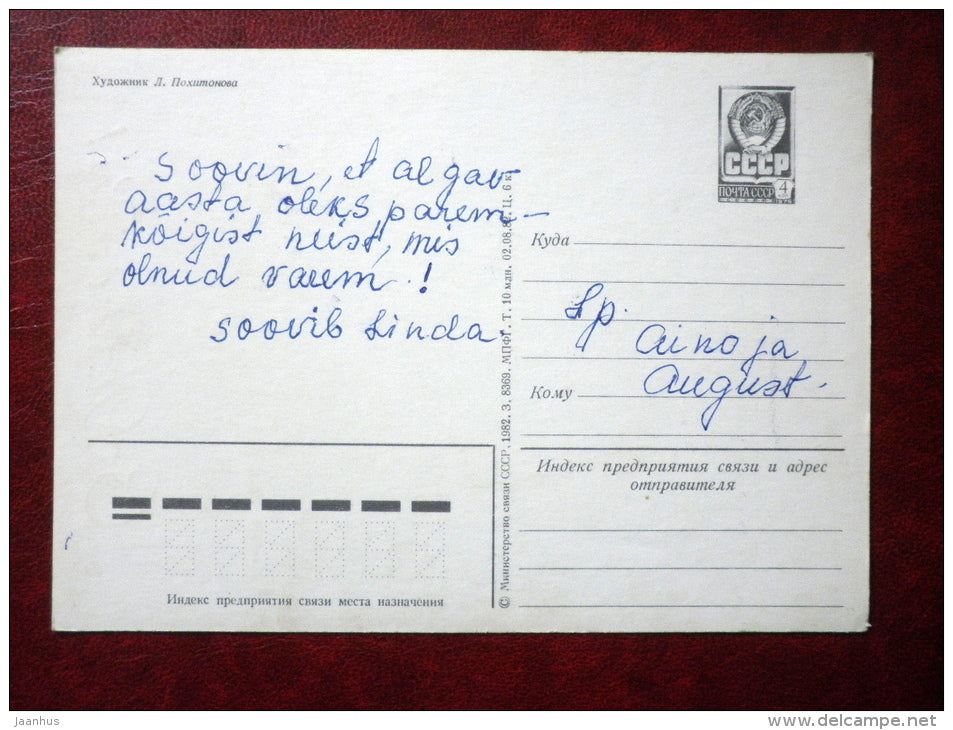 Художник Л. Похитонова
Soovin, et algav
aasta oleks parem
kõigist neist, mis
olnud varem!
Soovib Linda.
СССР
ПОЧТА СССР 4
1976
Куда
Lp.
Aino ja
Кому
August.
Индекс предприятия связи и адрес
отправителя
Индекс предприятия связи места назначения
© Министерство связи СССР, 1982. З. 8369. МПФГ. Т. 10 млн. 02.08. Ц. 6 к.
Jaanhus
www.delcampe.net